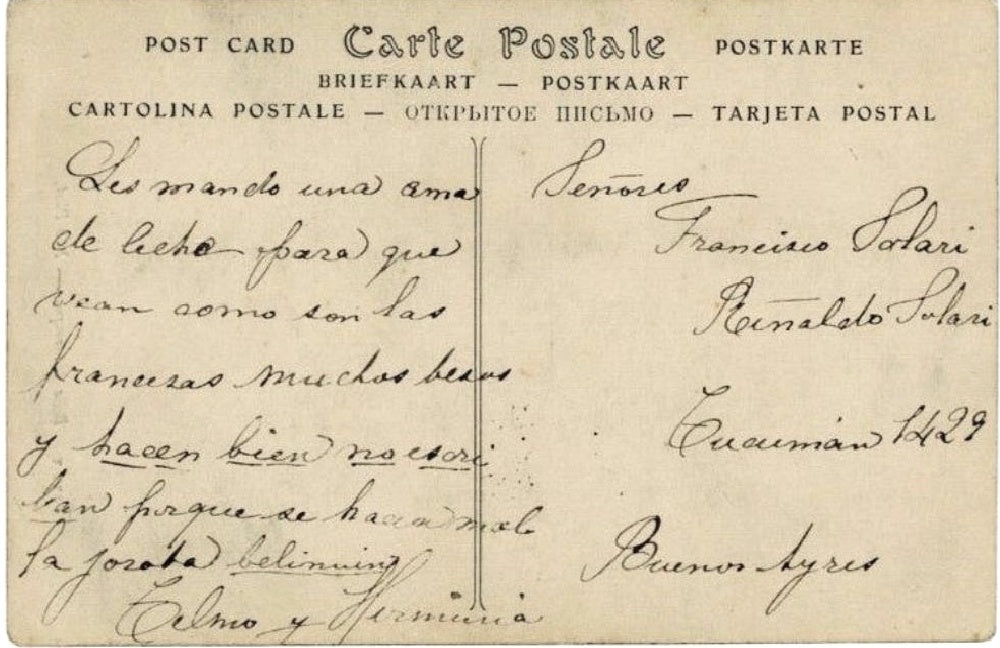 POST CARD Carte Postale POSTKARTE
BRIEFKAART — POSTKAART
CARTOLINA POSTALE — ОТКРЫТОЕ ПИСЬМО — TARJETA POSTAL
Les mando una ama
de leche para que
vean como son las
francezas muchos besos
y hacen bien no escri
ban porque se hacen mal
la
Telmo y Herminia
Señores
Francisco Solari
Reinaldo Solari
Tucumán 1429
Buenos Ayres